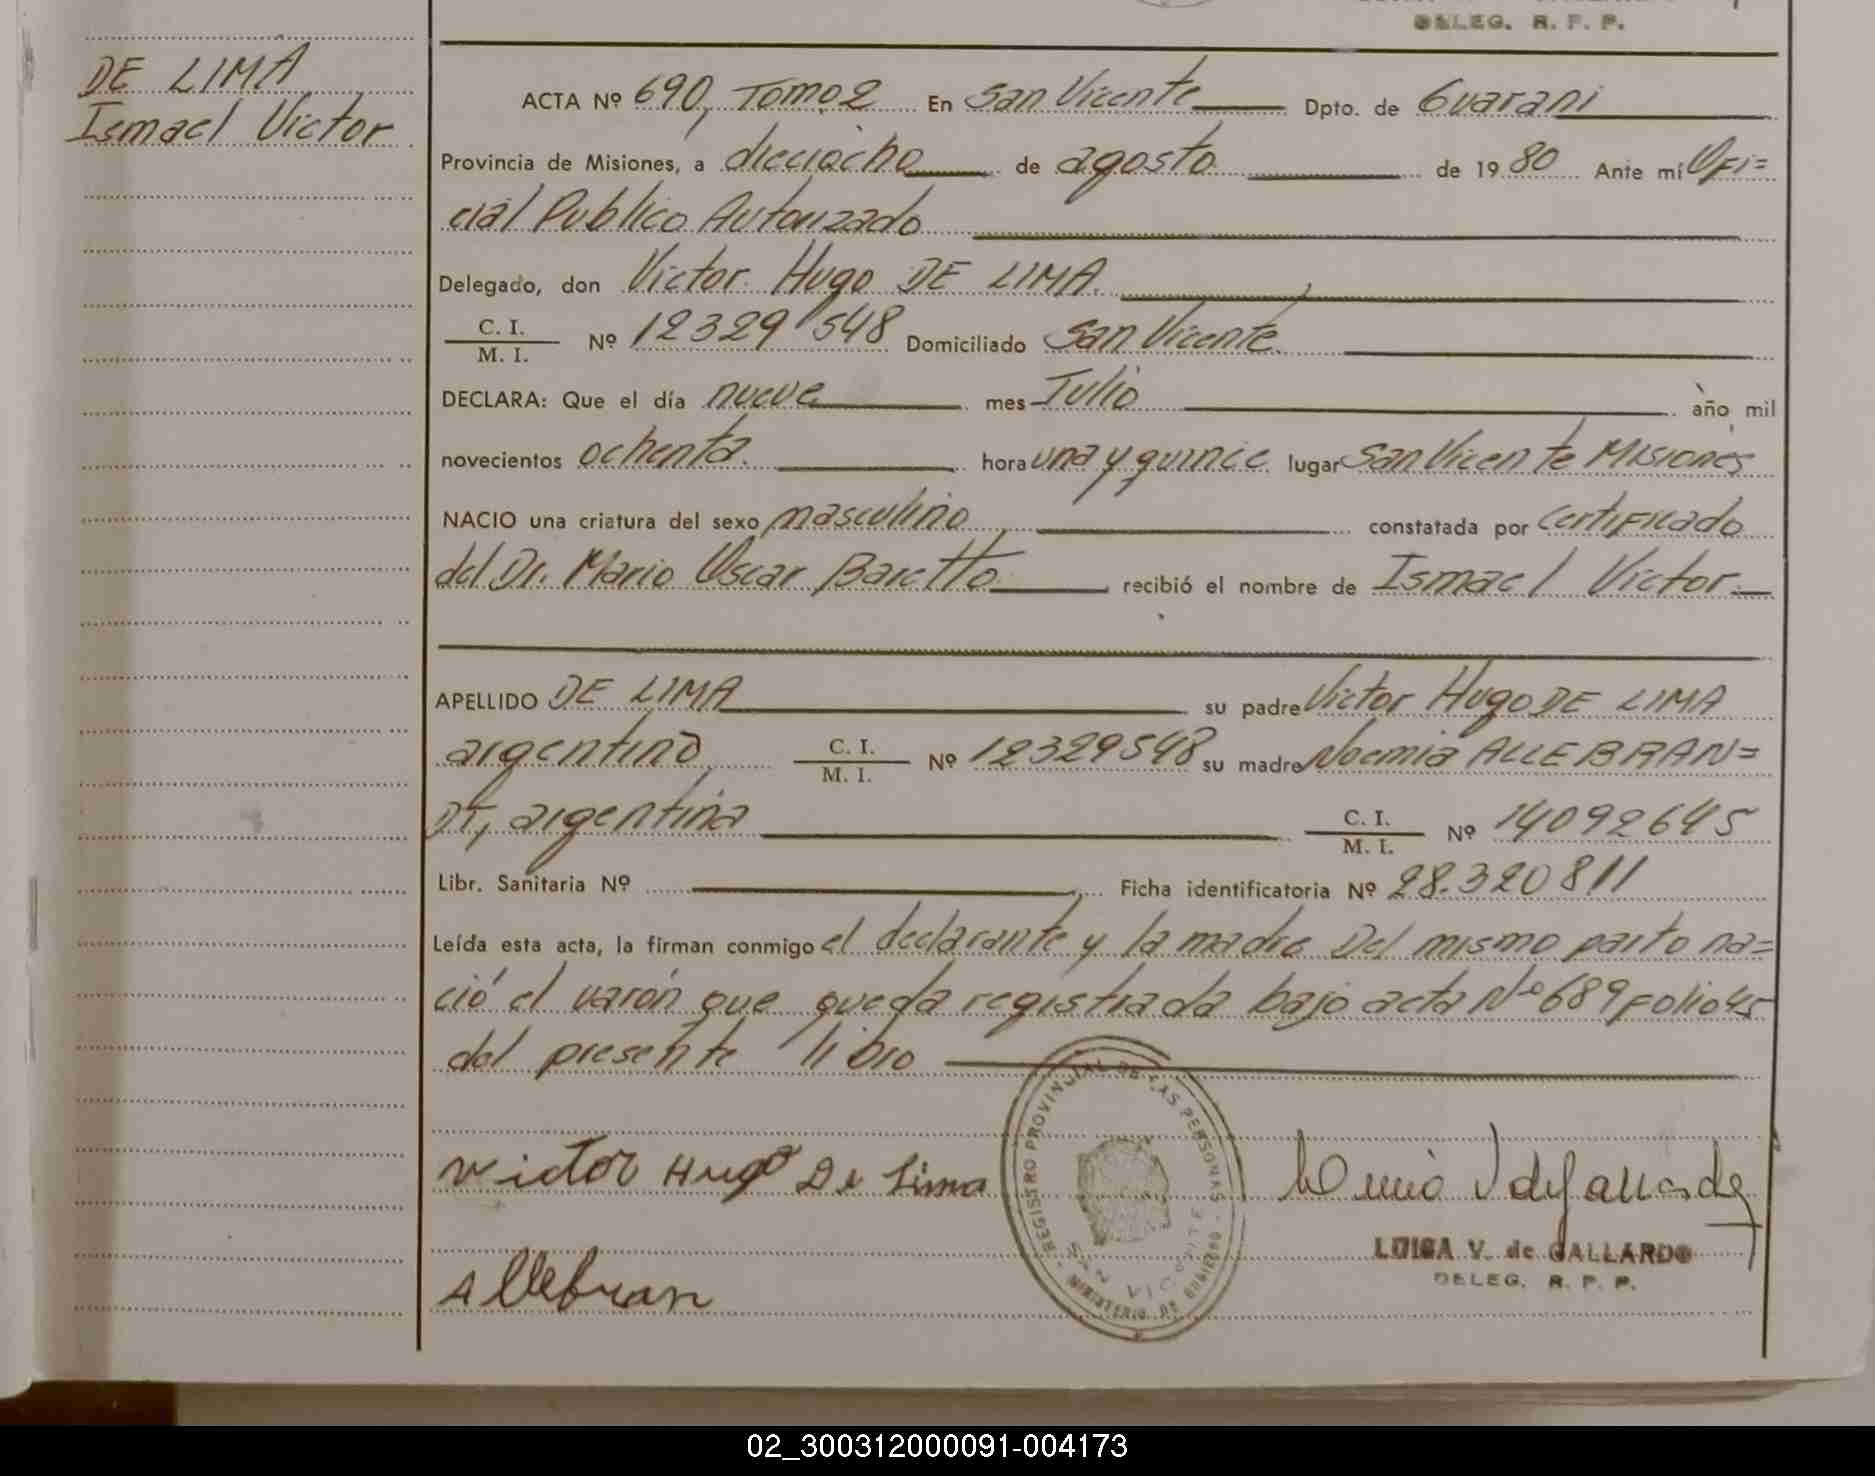 DELEG. R. P. P.
DE LIMA
Ismael Victor
ACTA Nº 690, Tomo 2 En San Vicente Dpto. de Guarani
Provincia de Misiones, a dieciocho de agosto de 1980 Ante mí Ofi=
cial Publico Autorizado
Delegado, don Victor Hugo DE LIMA
C. I. / M. I. Nº 12329548 Domiciliado San Vicente
DECLARA: Que el día nueve mes Julio año mil
novecientos ochenta hora una y quince lugar San Vicente Misiones
NACIO una criatura del sexo masculino constatada por certificado
del Dr. Mario Oscar Baretto recibió el nombre de Ismael Victor
APELLIDO DE LIMA su padre Victor Hugo DE LIMA
argentino C. I. / M. I. Nº 12329548 su madre Noemia ALLEBRAN=
DT, argentina C. I. / M. I. Nº 14092645
Libr. Sanitaria Nº Ficha identificatoria Nº 28.320811
Leída esta acta, la firman conmigo el declarante y la madre Del mismo parto na=
ció el varón que queda registrada bajo acta Nº 689 Folio 45
del presente libro
REGISTRO PROVINCIAL DE LAS PERSONAS
SAN VICENTE
MINISTERIO DE GOBIERNO
Victor Hugo De Lima
Allebran
LUISA V. de GALLARDO
DELEG. R. P. P.
02_300312000091-004173